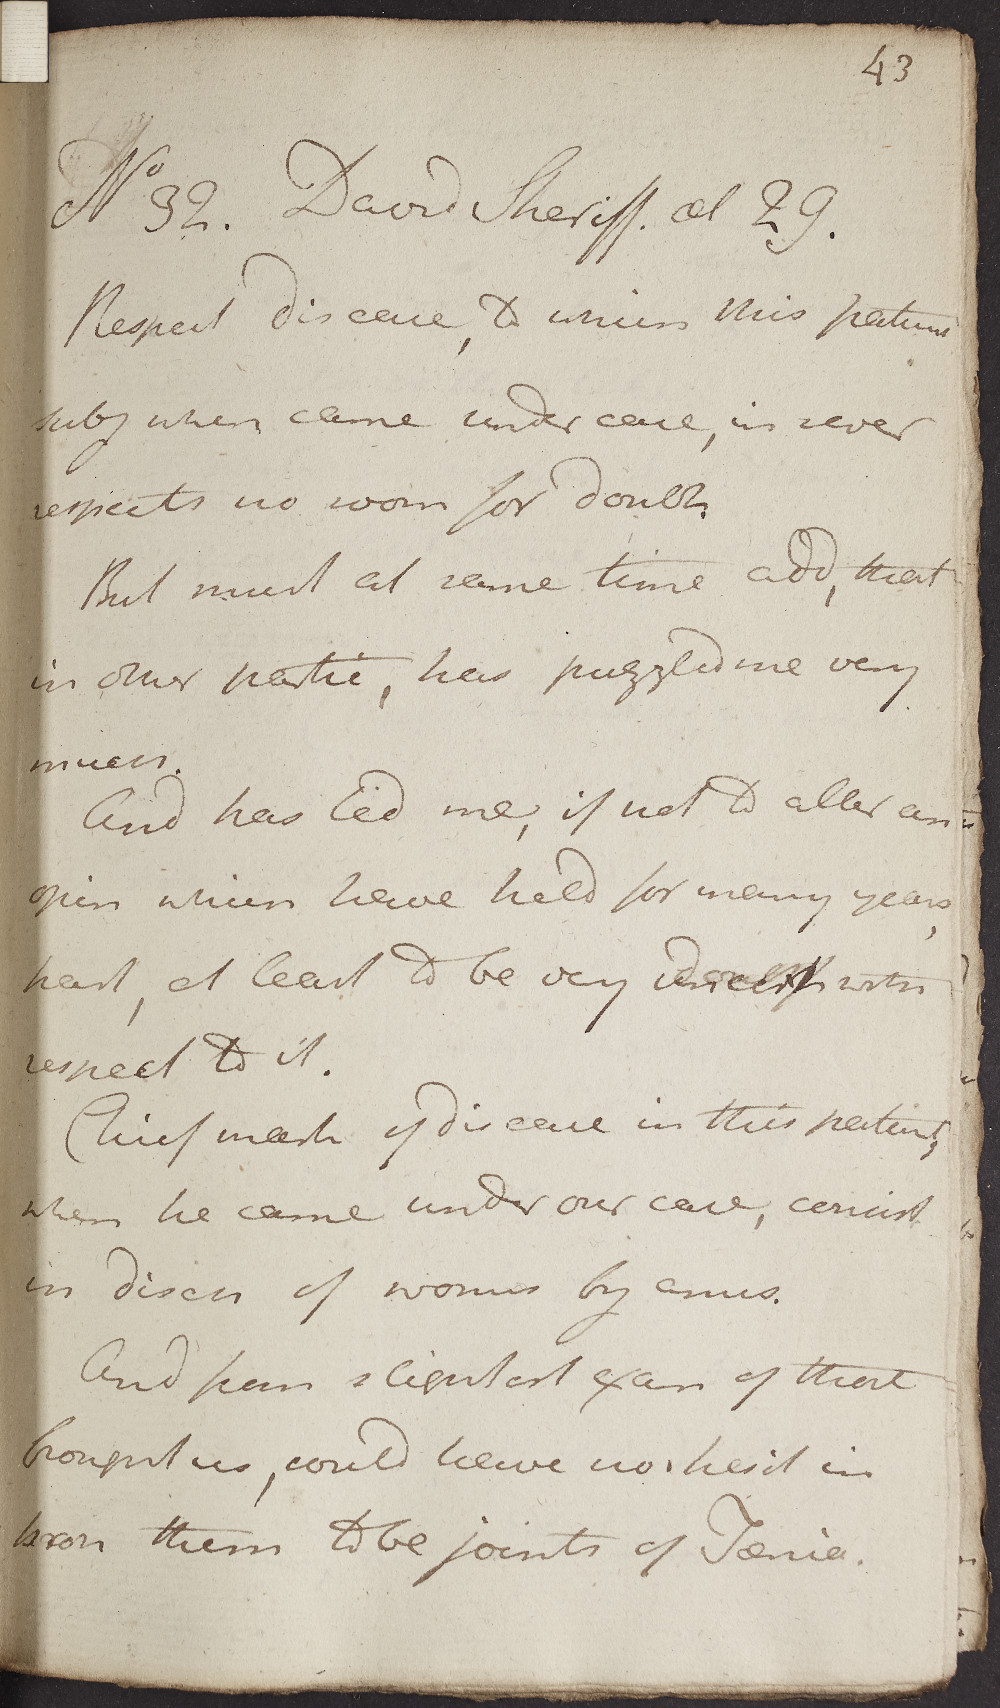 43
No 32. David Sheriff. æt 29.
Respect disease, to which this patient
subj when came under care, in sever
respects no room for doubt.
But must at same time add, that
in other partic, has puzzled me very
much.
And has led me, if not to alter an
opin which have held for many years
past, at least to be very with
respect to it.
Chief mark of disease in this patient,
when he came under our care, consist
in disch of worms by anus.
And from slightest exam of that
brought us, could have no hesit in
pron them to be joints of Tænia.